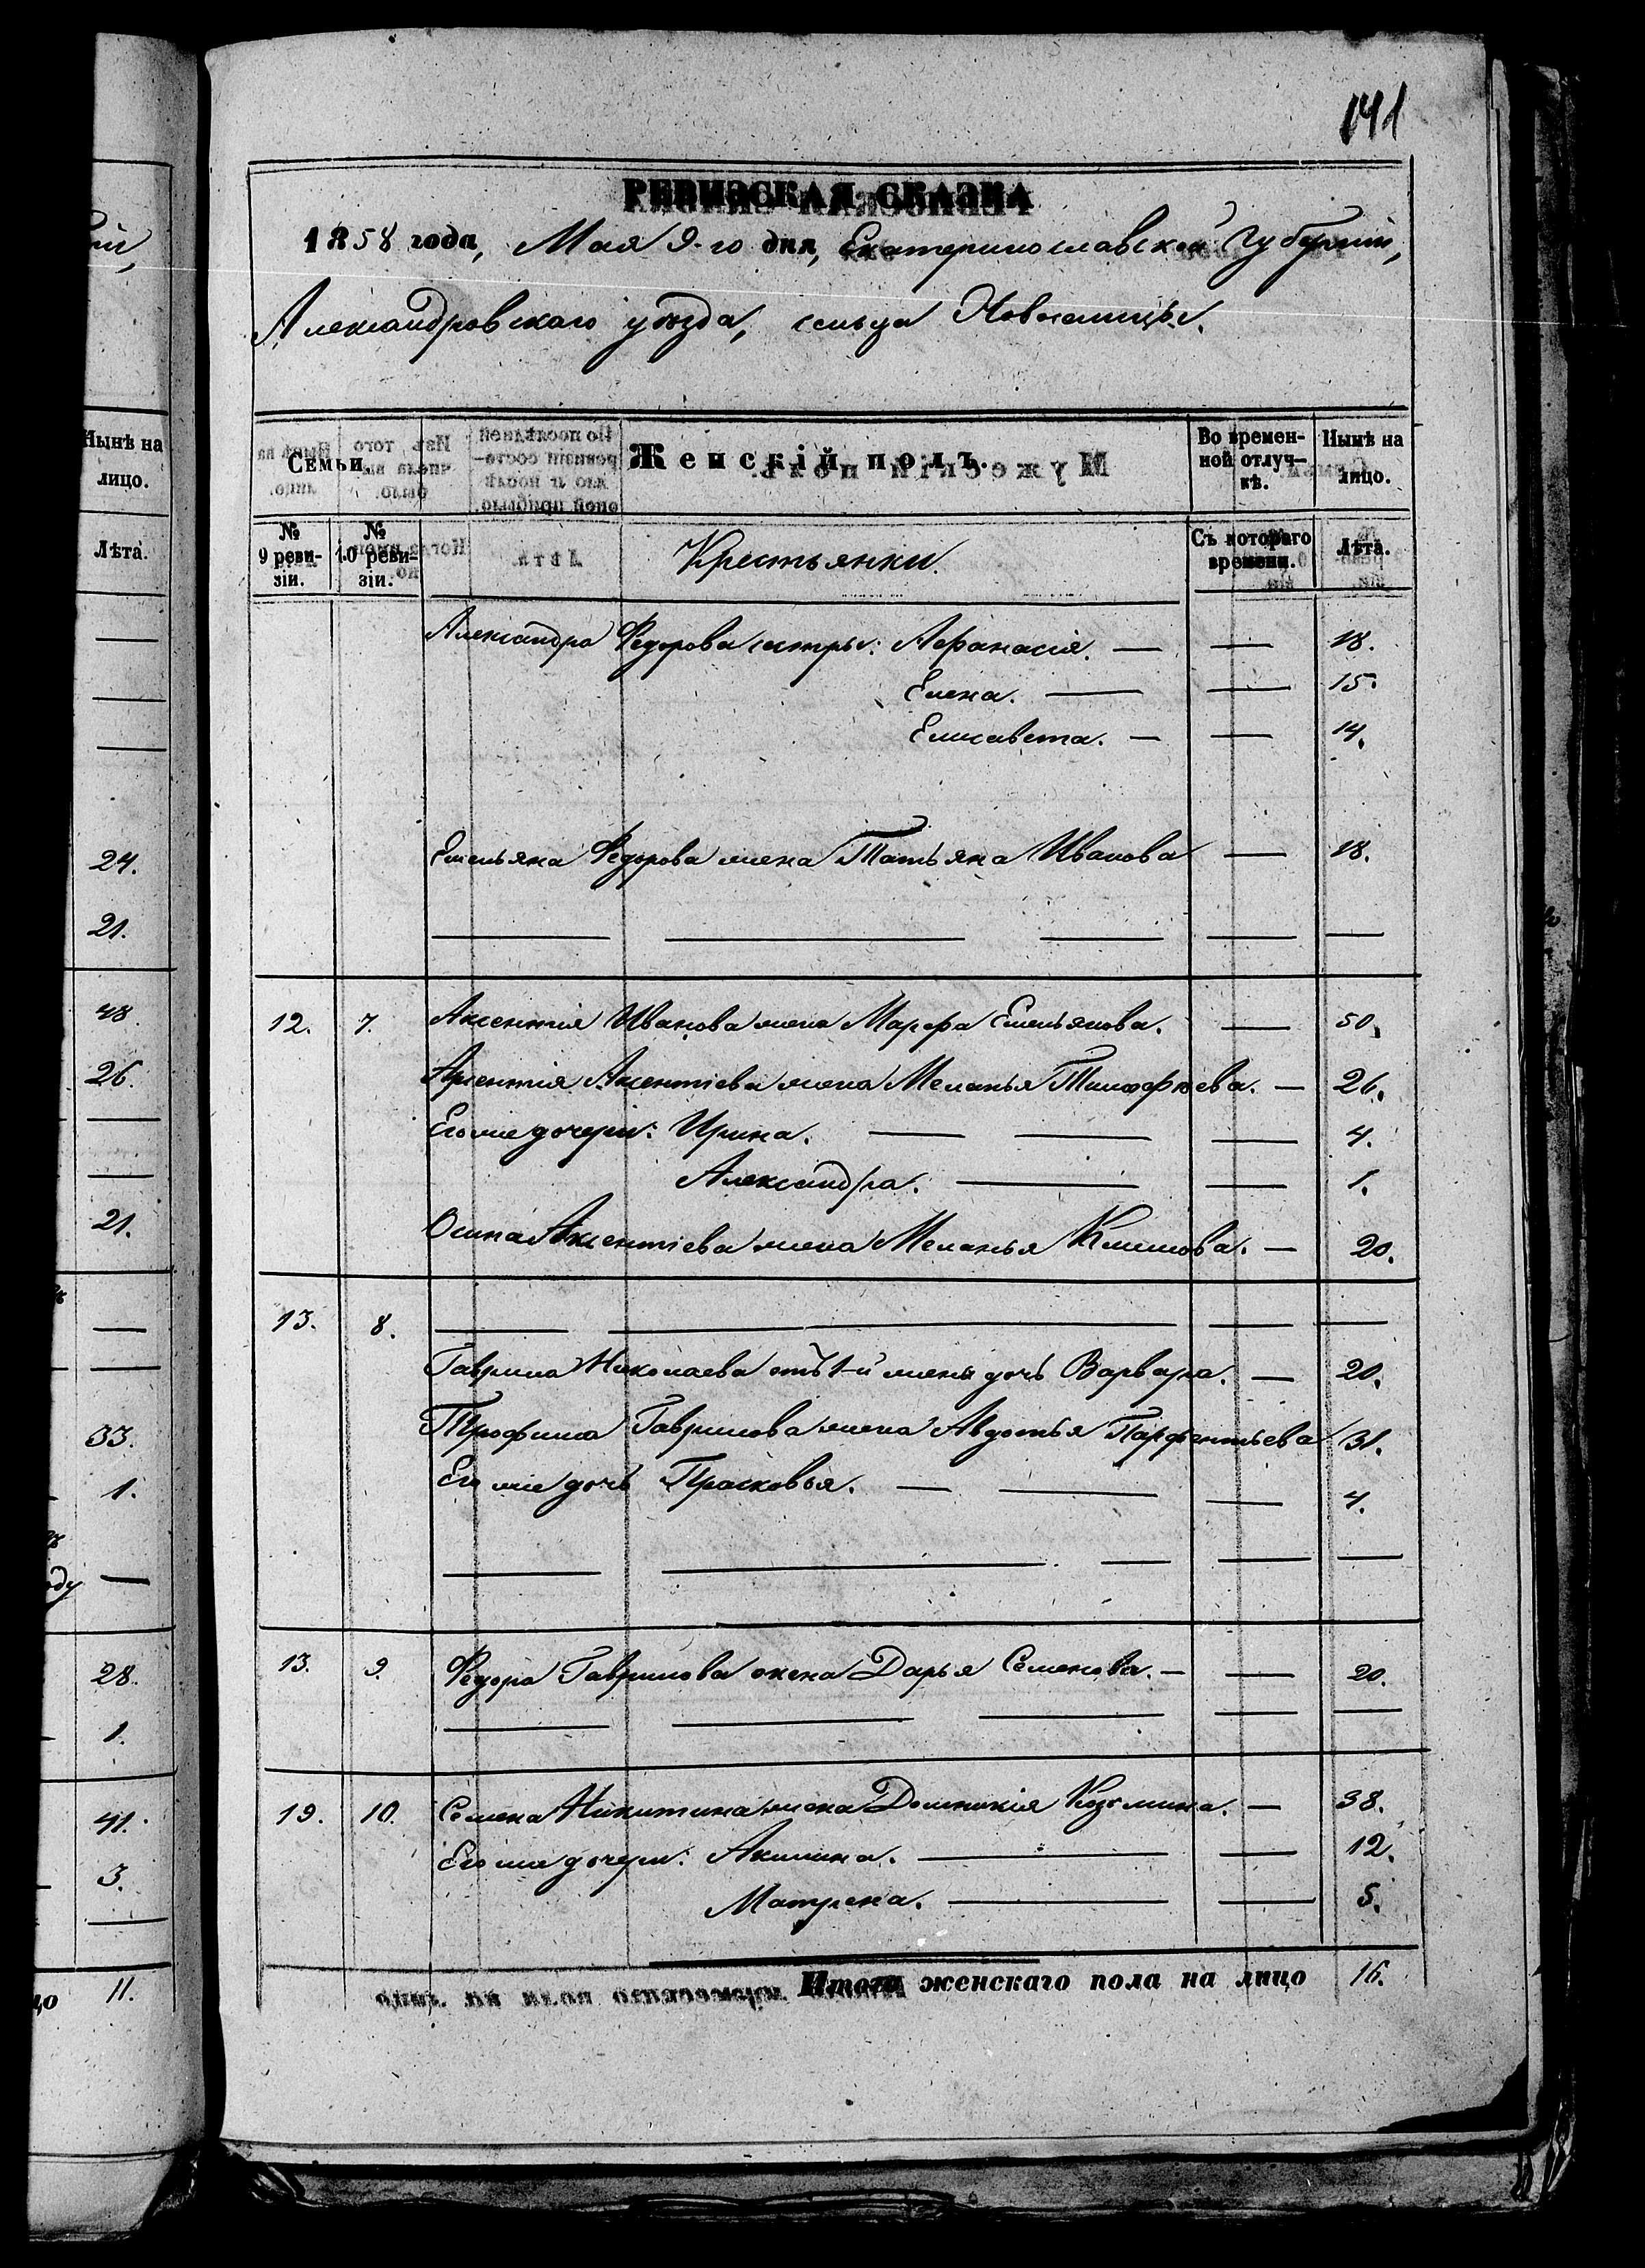 141
РЕВИЗСКАЯ СКАЗКА
1858 года, Мая 9-го дня, Екатеринославской Губерніи,
Александровскаго уѣзда, сельца Новоселицы.
Нынѣ на лицо.
Лѣта.
24.
21.
48
26.
21.
33.
1.
28.
1.
41.
3.
11.
Семьи.
Женскій полъ.
Во времен-
ной отлуч-
кѣ.
Нынѣ на
лицо.
№
9 реви-
зіи.
№
10 реви-
зіи.
Крестьянки.
Съ котораго
времени.
Лѣта.
Александра Федорова сестры: Афанасія. — — 18.
Елена. — — 15.
Елисавета. — — 14.
Емельяна Федорова жена Татьяна Иванова — 18.
12. 7. Аксентія Иванова жена Марфа Емельянова. — 50.
Арсентія Аксентіева жена Меланья Тимофѣева. — 26.
Его же дочери: Ирина. — — — 4.
Александра. — — 1.
Осипа Аксентіева жена Меланья Климова. — 20.
13. 8. — — — — —
Гаврила Николаева отъ 1-й жены дочь Варвара. — 20.
Трофима Гаврилова жена Авдотья Парфентьева 31.
Его же дочь Прасковья. — — — 4.
13. 9. Федора Гаврилова жена Дарья Семенова. — — 20.
19. 10. Семена Никитина жена Домникія Козьмина. — 38.
Его же дочери: Акилина. — — 12.
Матрена. — — 5.
Итого женскаго пола на лицо 16.